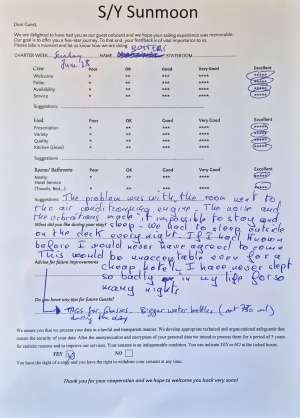 S/Y Sunmoon
Dear Guest,
We are delighted to have had you as our guest onboard and we hope your sailing experience was memorable.
Our goal is to offer you a five-star journey. To that end, your feedback is of vital importance to us.
Please take a moment and let us know how we are doing.
CHARTER WEEK Sunday NAME STATEROOM
June 28
Crew Poor OK Good Very Good Excellent
Welcome * ** *** **** *****
Polite * ** *** **** *****
Availability * ** *** **** *****
Service * ** *** **** *****
Suggestions
Food Poor OK Good Very Good Excellent
Presentation * ** *** **** *****
Variety * ** *** **** *****
Quality * ** *** **** *****
Kitchen (clean) * ** *** **** *****
Suggestions
Rooms/ Bathrooms Poor OK Good Very Good Excellent
Ready * ** *** **** *****
Hotel Service * ** *** **** *****
(Towels, Bed...)
Suggestions The problem was with the room next to
the air conditioning engine. The noise and
the vibrations made it impossible to stay and
What did you like during your stay? sleep - We had to sleep outside
on the deck every night. If I had known
before I would never have agreed to come.
This would be unacceptable even for a
Advise for future improvements cheap hotel. I have never slept
so badly in my life for so
many nights.
Do you have any tips for future Guests?
Tags for glasses. Bigger water bottles (not 750 ml)
during the day
We assure you that we process your data in a lawful and transparent manner. We develop appropriate technical and organizational safeguards that
ensure the security of your data. After the anonymization and encryption of your personal data we intend to process them for a period of 5 years
for statistic reasons and to improve our services. Your consent is an indispensable condition. You can indicate YES or NO at the ticked boxes.
YES NO
You have the right of a copy and you have the right to withdraw your consent at any time.
Thank you for your cooperation and we hope to welcome you back very soon!